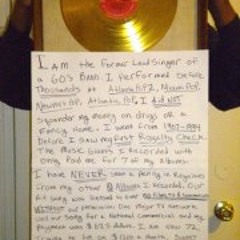 I AM the former Lead Singer
of a 60's BAND. I performed before
Thousands at Atlanta POP 2, Miami POP,
Newport POP, Atlantic POP, I did NOT
squander my money on drugs or a
fancy home. I went from 1967-1994
before I saw my first Royalty Check.
The Music Giants I recorded with
only paid me for 7 of my Albums.
I have NEVER seen a penny in Royalties
from my other 8 Albums I recorded. Our
hit song was licensed to over
WITHOUT our permission. One Major TV network
used our song for a National Commercial and my
payment was $625 dollars. I am now 72